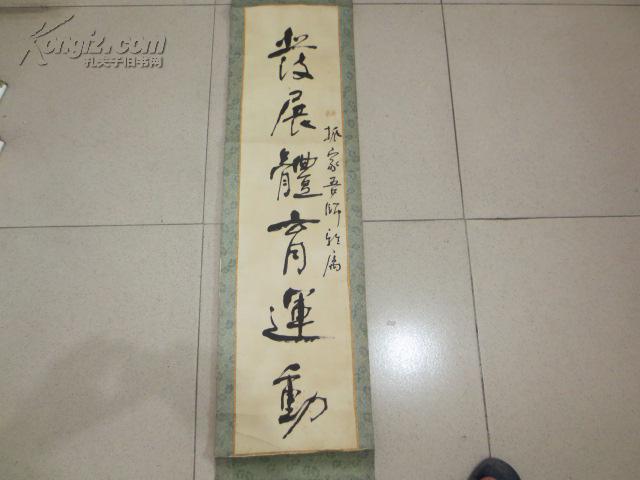 發展體育運動
振家吾師雅屬
Kongfz.com
孔夫子旧书网